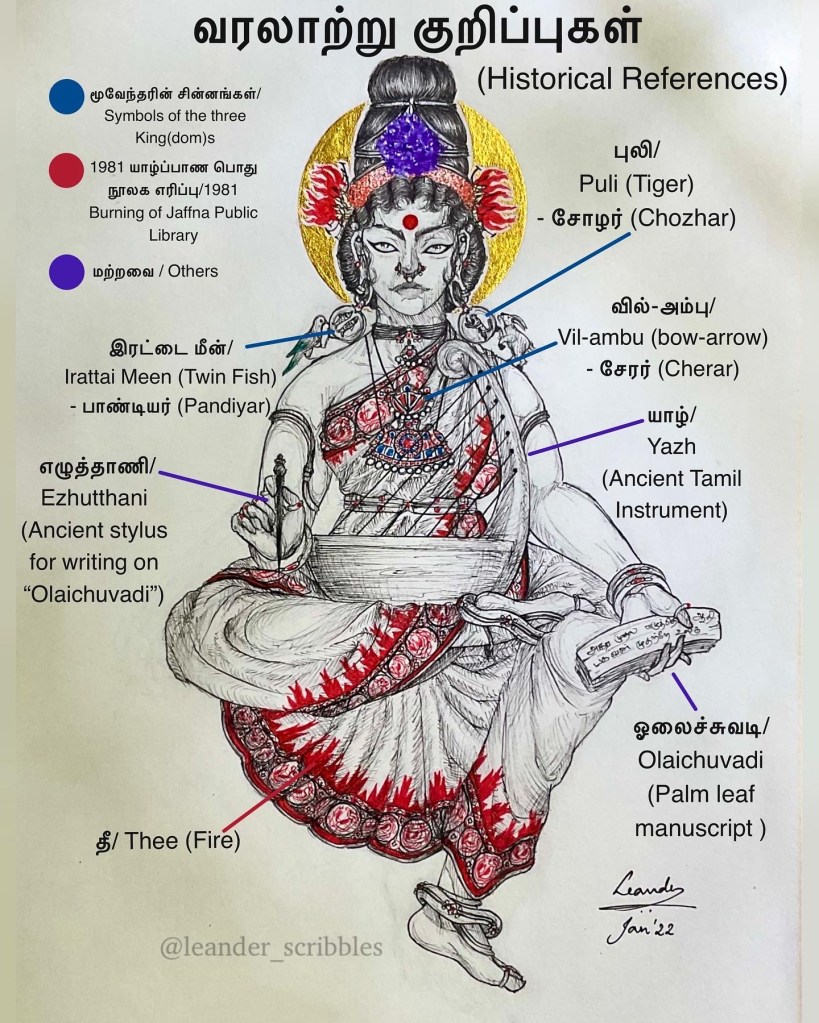 வரலாற்று குறிப்புகள்
(Historical References)
மூவேந்தரின் சின்னங்கள்/
Symbols of the three
King(dom)s
1981 யாழ்ப்பாண பொது
நூலக எரிப்பு/1981
Burning of Jaffna Public
Library
மற்றவை / Others
புலி/
Puli (Tiger)
- சோழர் (Chozhar)
வில்-அம்பு/
Vil-ambu (bow-arrow)
- சேரர் (Cherar)
இரட்டை மீன்/
Irattai Meen (Twin Fish)
- பாண்டியர் (Pandiyar)
யாழ்/
Yazh
(Ancient Tamil
Instrument)
எழுத்தாணி/
Ezhutthani
(Ancient stylus
for writing on
“Olaichuvadi”)
அகர முதல எழுத்தெ ஆதி
முதற்றே உலகு
ஓலைச்சுவடி/
Olaichuvadi
(Palm leaf
manuscript )
தீ/ Thee (Fire)
Leander
Jan'22
@leander_scribbles